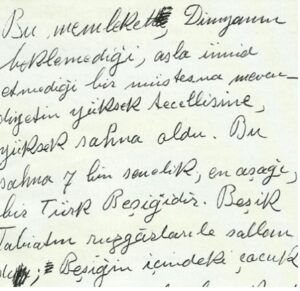 Bu memleket, Dünyanın
beklemediği, asla ümid
etmediği bir müstesna mevcu-
diyetin yüksek tecellisine,
yüksek sahna oldu. Bu
sahna 7 bin senelik, en aşağı,
bir Türk Beşiğidir. Beşik
tabiatın rüzgârlarile sallan
dı; Beşiğin içindeki çocuk